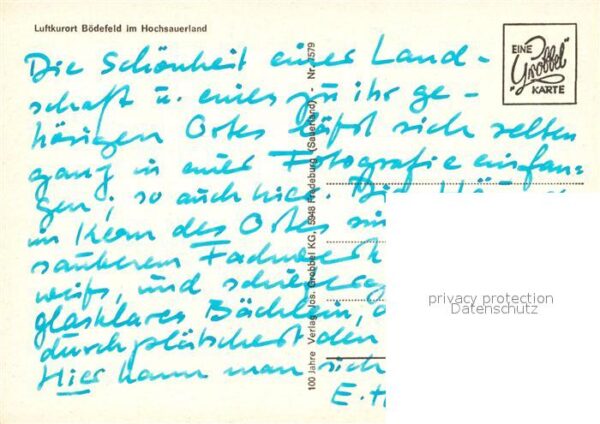 Luftkurort Bödefeld im Hochsauerland
EINE
"Grobbel"
KARTE
Die Schönheit einer Land-
schaft u. eines zu ihr ge-
hörigen Ortes läßt sich selten
ganz in einer Fotografie einfan-
gen; so auch hier. Die
im Kern des Ortes
sauberem Fachwerk
weiß, und
glasklares Bächlein,
durchplätschert den
Hier kann man sich
E.
100 Jahre Verlag Jos. Grobbel KG, 5948 Fredeburg (Sauerland) - Nr. 7579
privacy protection
Datenschutz